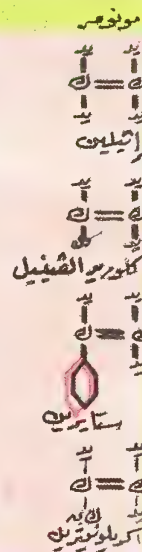 مونومر
يد يد
ك = ك
يد يد
اثيلين
يد يد
ك = ك
يد
كلوريو الفينيل
يد يد
ك = ك
يد
ستايرين
يد يد
ك = ك
يد
اكريلونيتريل